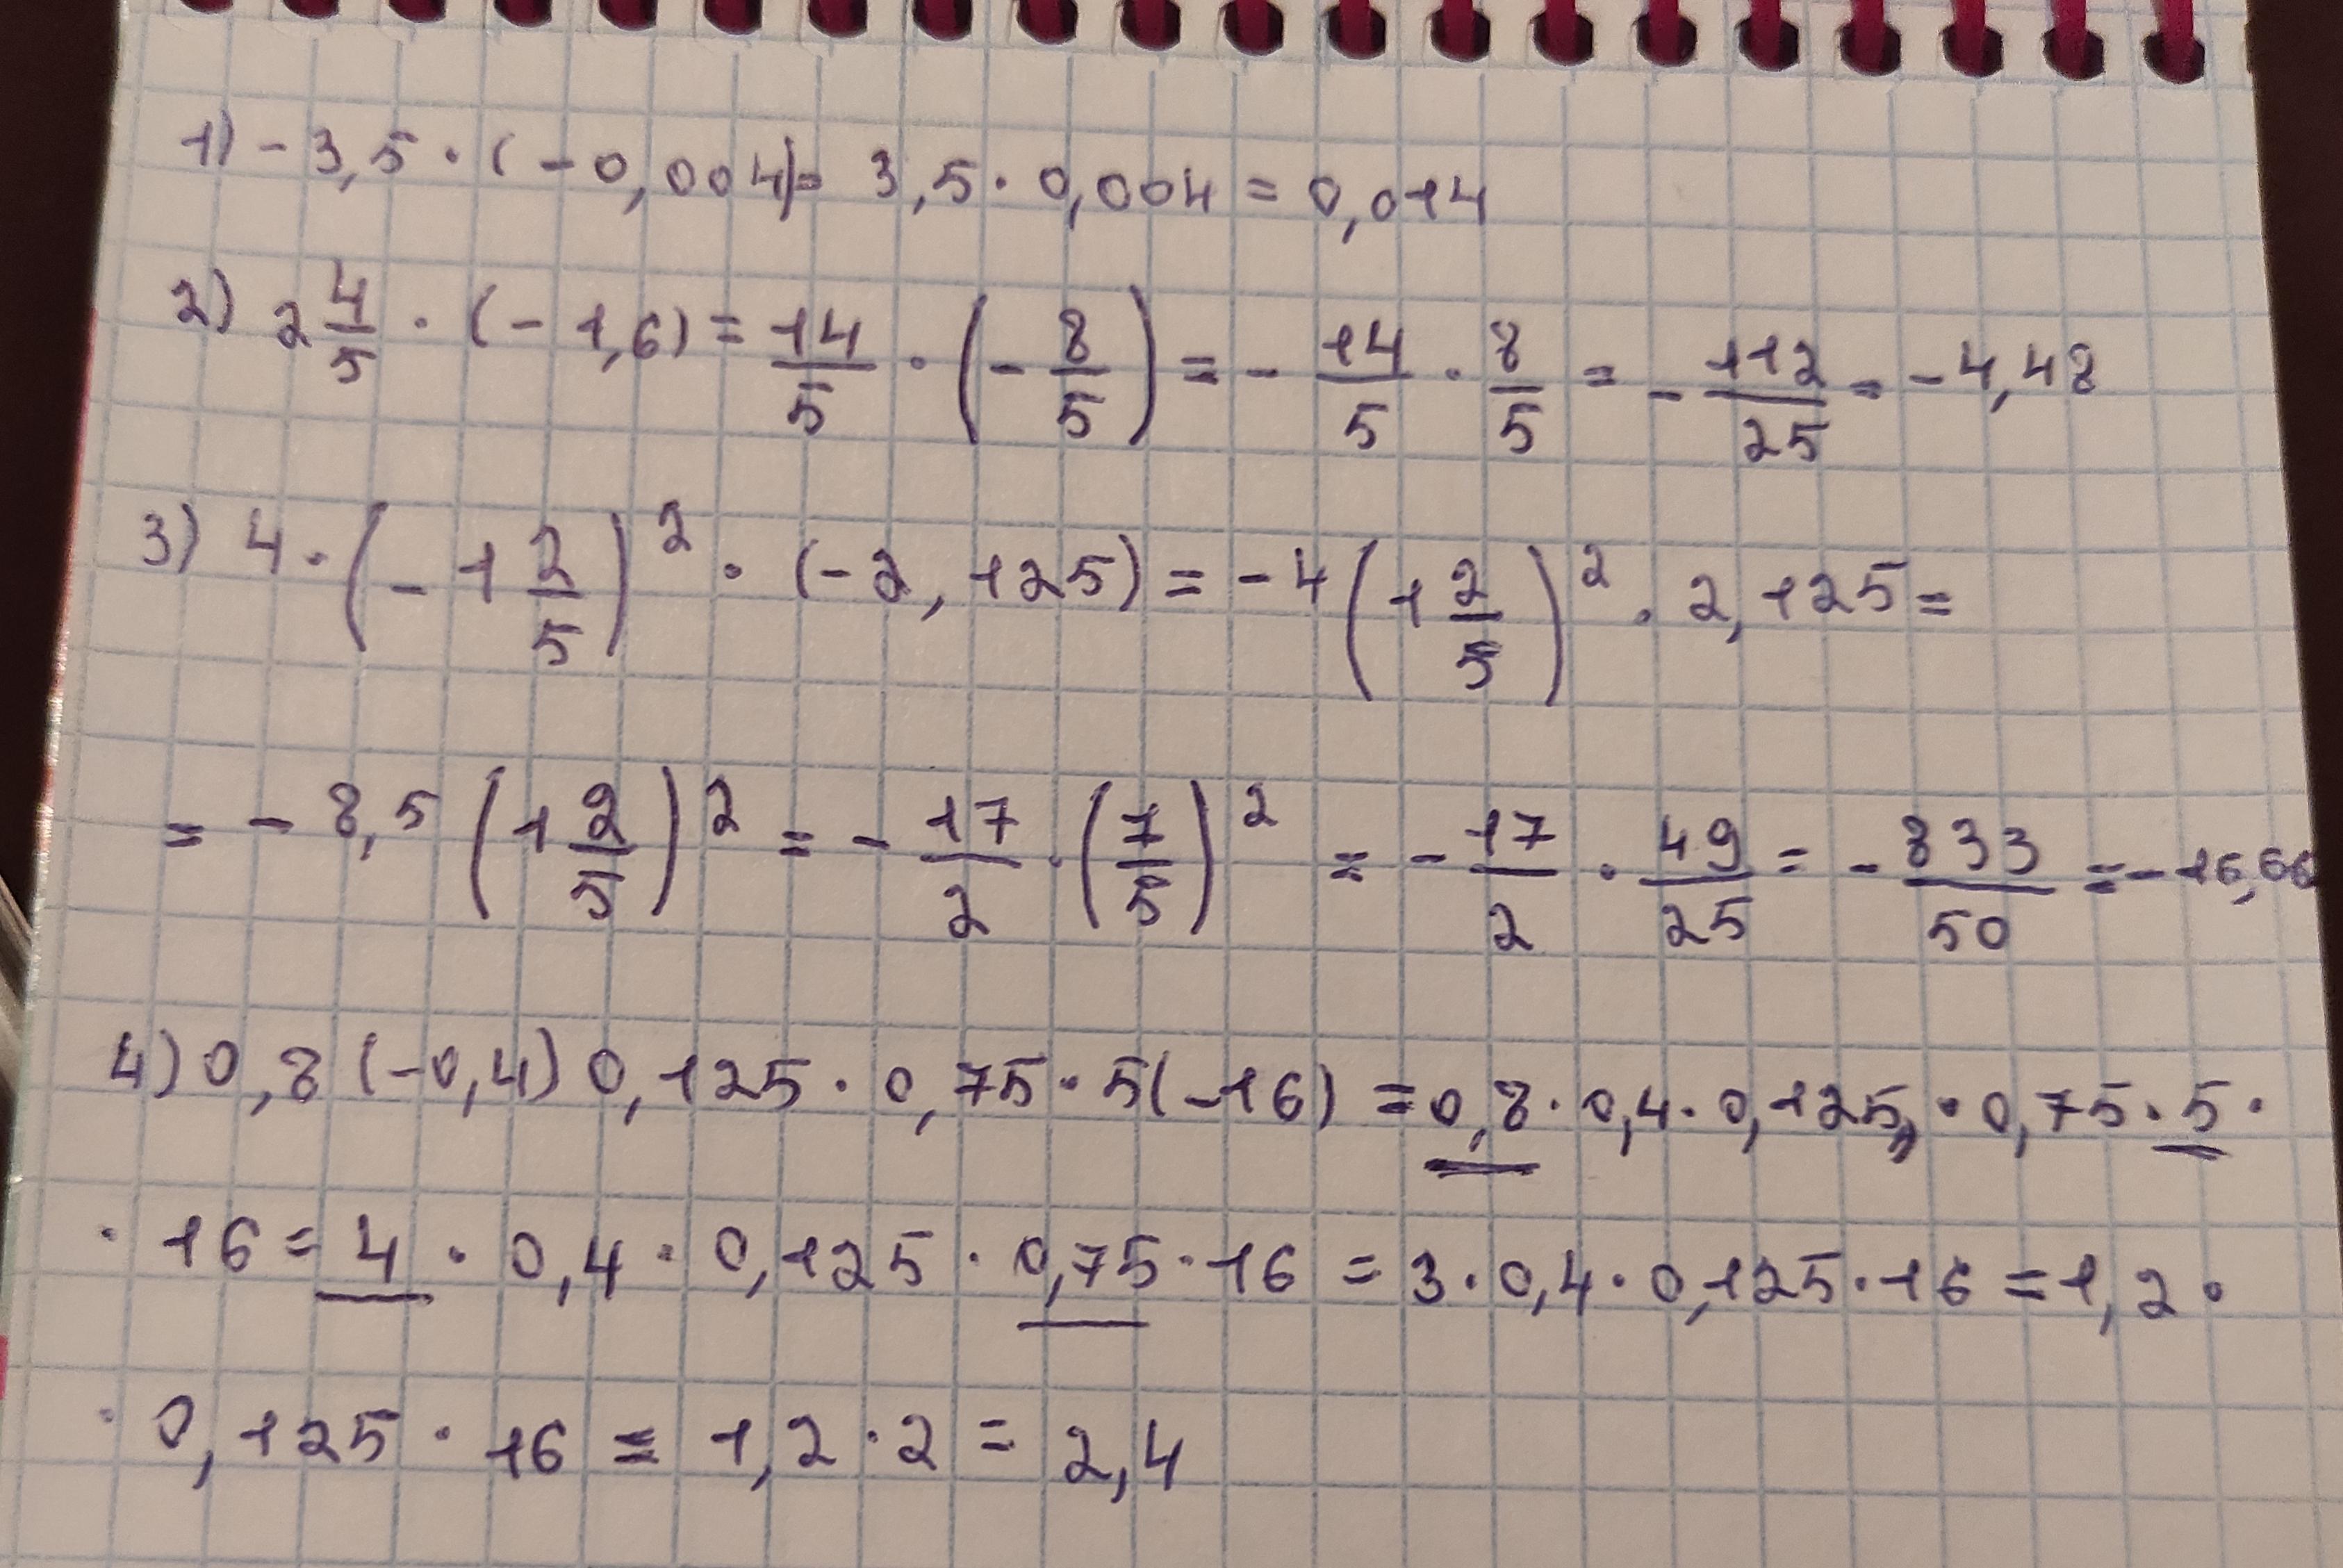 1) - 3,5 · (-0,004) = 3,5 · 0,004 = 0,014
2) 2 4/5 · (-1,6) = 14/5 · (- 8/5) = - 14/5 · 8/5 = - 112/25 = -4,48
3) 4 · (-1 2/5)² · (-2,125) = -4 (1 2/5)² · 2,125 =
= - 8,5 (1 2/5)² = - 17/2 · (7/5)² = - 17/2 · 49/25 = - 833/50 = - 16,66
4) 0,8 (-0,4) 0,125 · 0,75 · 5(-16) = 0,8 · 0,4 · 0,125 · 0,75 · 5 ·
· 16 = 4 · 0,4 · 0,125 · 0,75 · 16 = 3 · 0,4 · 0,125 · 16 = 1,2 ·
· 0,125 · 16 = 1,2 · 2 = 2,4